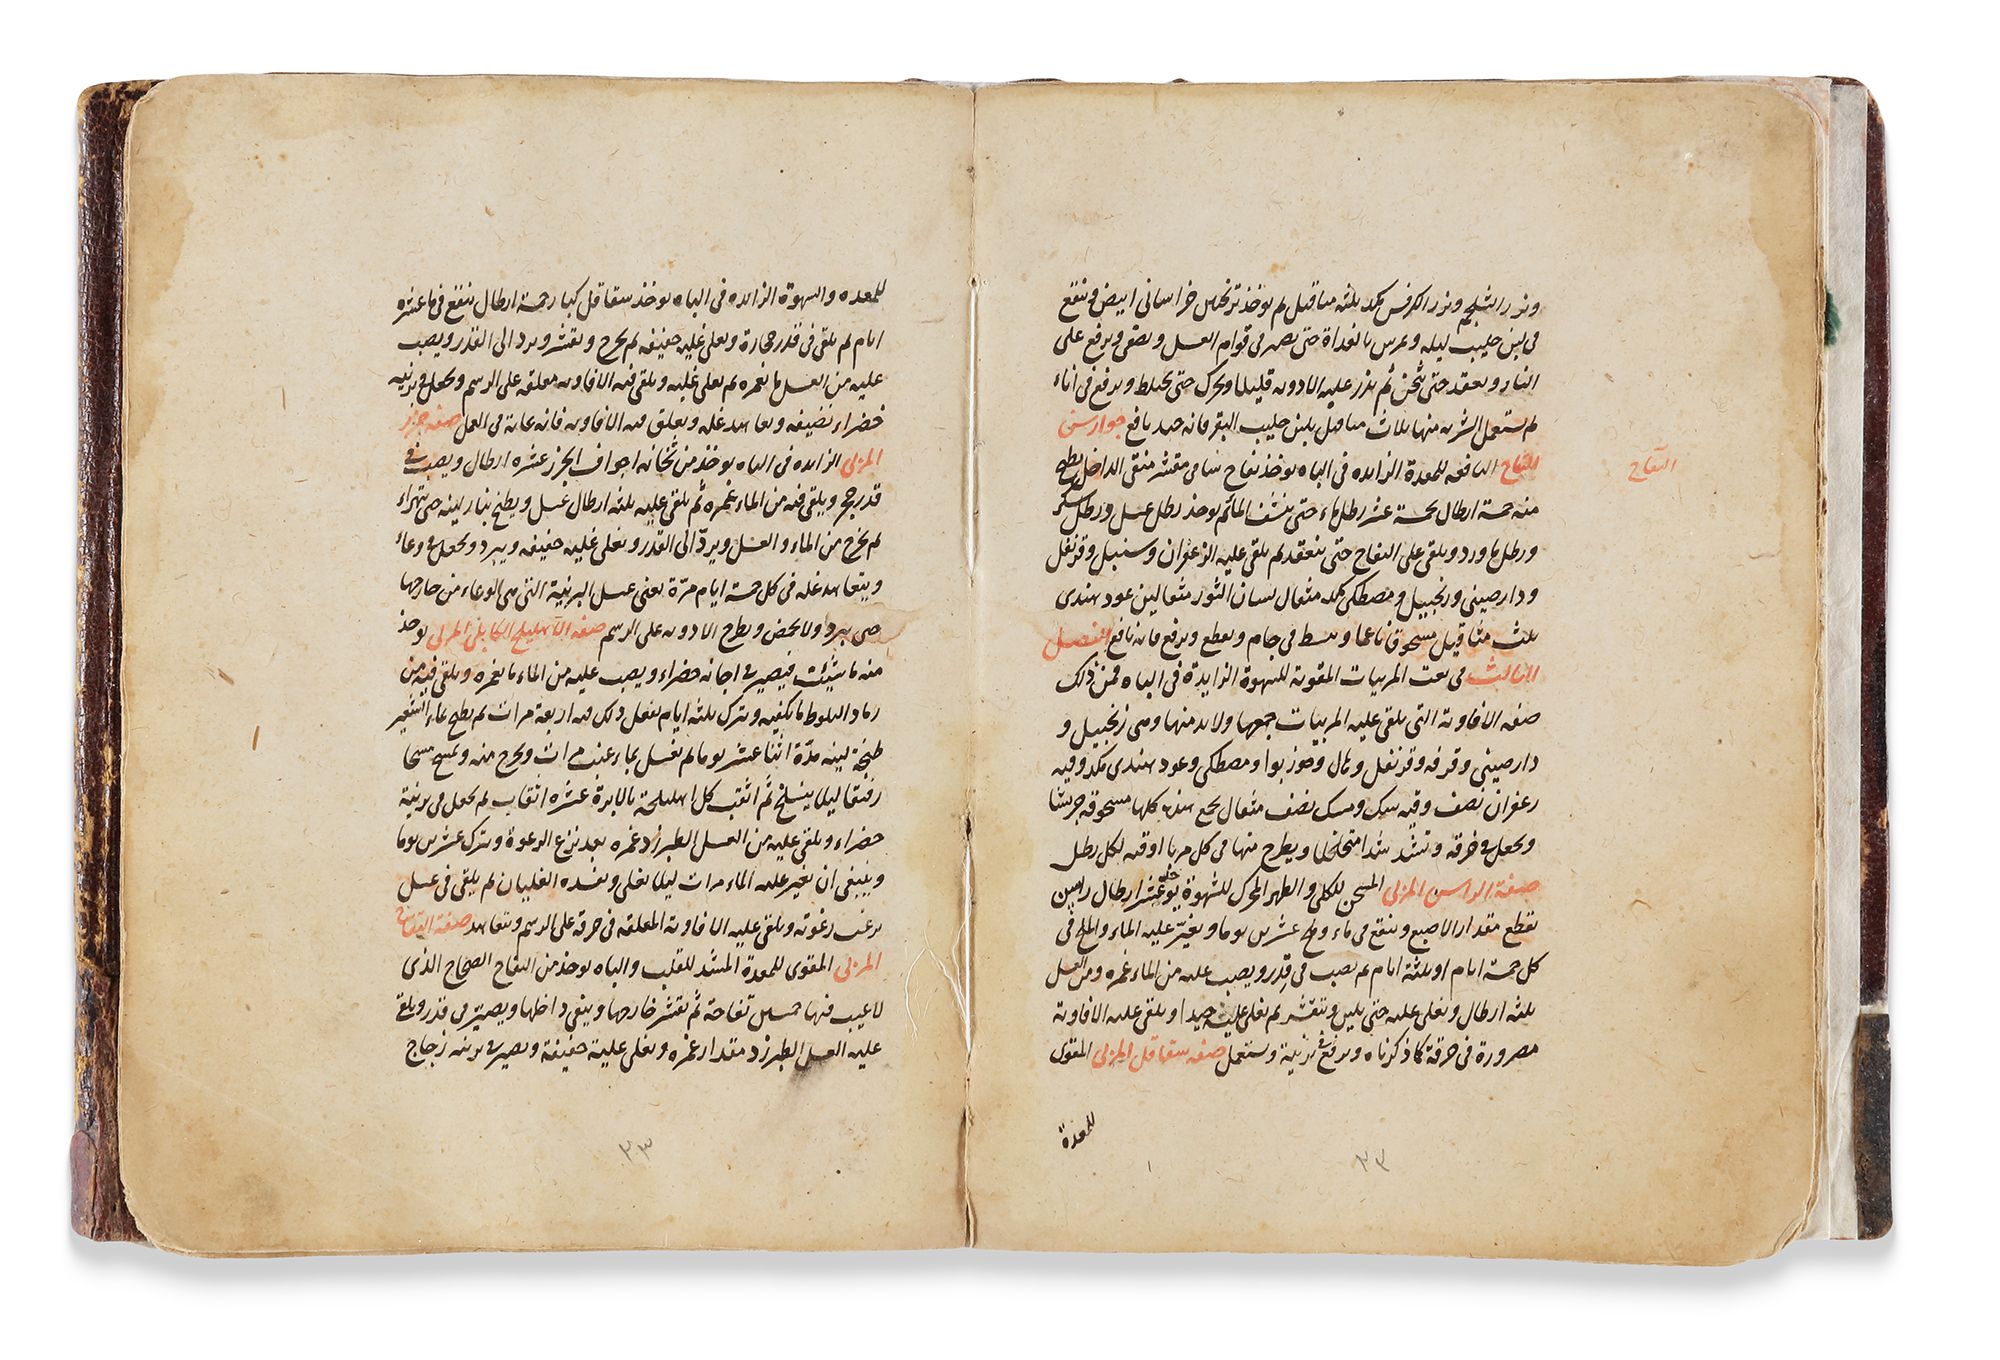 وبزر الشلجم وبزر الكرفس مكد ثلثه مثاقيل ثم يوخذ ترنجبين خراسانى ابيض وينقع
فى لبن حليب ليله ويمرس بالغداة حتى يصير فى قوام العسل ويصفى ويرفع على
النار ويعقد حتى يثخن ثم يذر عليه الادويه قليلا ويحرك حتى يختلط ويرفع فى اناء
ثم يستعمل الشربه منها ثلاث مثاقيل بلبن حليب البقر فانه جيد نافع جوارسن
التفاح النافعه للمعدة الزايده فى الباه يوخذ تفاح شامى مقشر منقى الداخل يطبخ
التفاح
منه خمسة ارطال بخمسة عشر رطل ماء حتى ينشف الماء ثم يوخذ رطل عسل ورطل سكر
ورطل ماورد ويلقى على التفاح حتى ينعقد ثم يلقى عليه الزعفران وسنبل وقرنفل
ودارصينى وزنجبيل ومصطكى مكد مثقال لسان الثور مثقالين عود هندى
ثلث مثاقيل مسحوقا ناعما ويبسط فى جام ويقطع ويرفع فانه نافع الفصل
الثالث فى نعت المربيات المقويه للشهوة الزايدة فى الباه فمن ذلك
صفه الافاويه التى يلقى عليه المربيات جمعها ولابد منها وهى زنجبيل و
دارصينى وقرفه وقرنفل وهال وجوز بوا ومصطكى وعود هندى مكد وقيه
زعفران نصف وقيه سك ومسك نصف مثقال يجمع هذه كلها مسحوقه جريشا
ويجعل فى خرقه وتشد شدا متخلخلا ويطرح منها فى كل مربا اوقيه لكل رطل
صفة الراسن المربى المسخن للكلى والظهر المحرك للشهوة يوخذ عشر ارطال راسن
يقطع مقدار الاصبع وينقع فى ماء وملح عشرين يوما ويغير عليه الماء والملح فى
كل خمسة ايام او ثلثة ايام ثم يصب فى قدر ويصب عليه من الماء غمره ومن العسل
ثلثه ارطال ويغلى عليه حتى يلين وتقشر ثم يغلى غليه جيدا ويلقى عليه الافاويه
مصرورة فى خرقة كما ذكرناه ويرفع فى برنية ويستعمل صفه شقاقل المربى المقوى
للمعدة
٣٢
للمعده والشهوة الزايده فى الباه يوخذ شقاقل كبار خمسة ارطال ينقع فى ماء عشره
ايام ثم يلقى فى قدر حجارة ويغلى غليه خفيفه ثم يخرج ويقشر ويرد الى القدر ويصب
عليه من العسل ما يغمره ثم يغلى غليه ويلقى فيه الافاويه معلقه على الرسم ويجعل فى برنيه
خضراء نضيفه ويعاهد غله ويعلق فيه الافاويه فانه غاية فى العمل صفه جزر
المربى الزايده فى الباه يوخذ من شحمانه اجواف الجزر عشره ارطال ويصب فى
قدر حجر ويلقى فيه من الماء غمره ثم يلقى عليه ثلثه ارطال عسل ويطبخ بنار لينه حتى يتهراء
ثم يخرج من الماء والعسل ويردّ الى القدر ويغلى غليه خفيفه ويبرد ويجعل فى وعاء
ويتعاهد غله فى كل خمسة ايام مرّة يعنى غسل البرنية التى هى الوعاء من خارجها
حتى يبرد ولا يحمض ويطرح الادويه على الرسم صفه الاهليلج الكابلى المربى يوخذ
منه ما شئت فيصير فى اجانه خضراء ويصب عليه من الماء ما يغمره ويلقى فيه من
رماد البلوط ما يكفيه ويترك ثلثه ايام يفعل ذلك فيه اربعة مرات ثم يطبخ بماء الشعير
طبخة لينه مدّة اثنا عشر يوما ثم يغسل بماء عذب مرات ويخرج منه ويمسح مسحا
رفيقا ليلا ينسلخ ثم اثقب كل اهليلجة بالابرة عشره اثقاب ثم يجعل فى برنية
خضراء ويلقى عليه من العسل الطبرزد غمره بعد نزع الرغوة ويترك عشرين يوما
وينبغى ان يغير عليه الماء مرات ليلا يغلى ويفسده الغليان ثم يلقى فى عسل
نزعت رغوته ويلقى عليه الافاويه المعلقه فى خرقة على الرسم ويتعاهد صفة التفاح
المربى المقوى للمعدة المشد للقلب والباه يوخذ من التفاح الصحاح الذى
لا عيب فيها خمسين تفاحة ثم يقشر خارجها وينقى داخلها ويصير فى قدر ويلقى
عليه العسل الطبرزد مقدار غمره ويغلى غلية خفيفة ويصير فى برنيه زجاج
٣٣